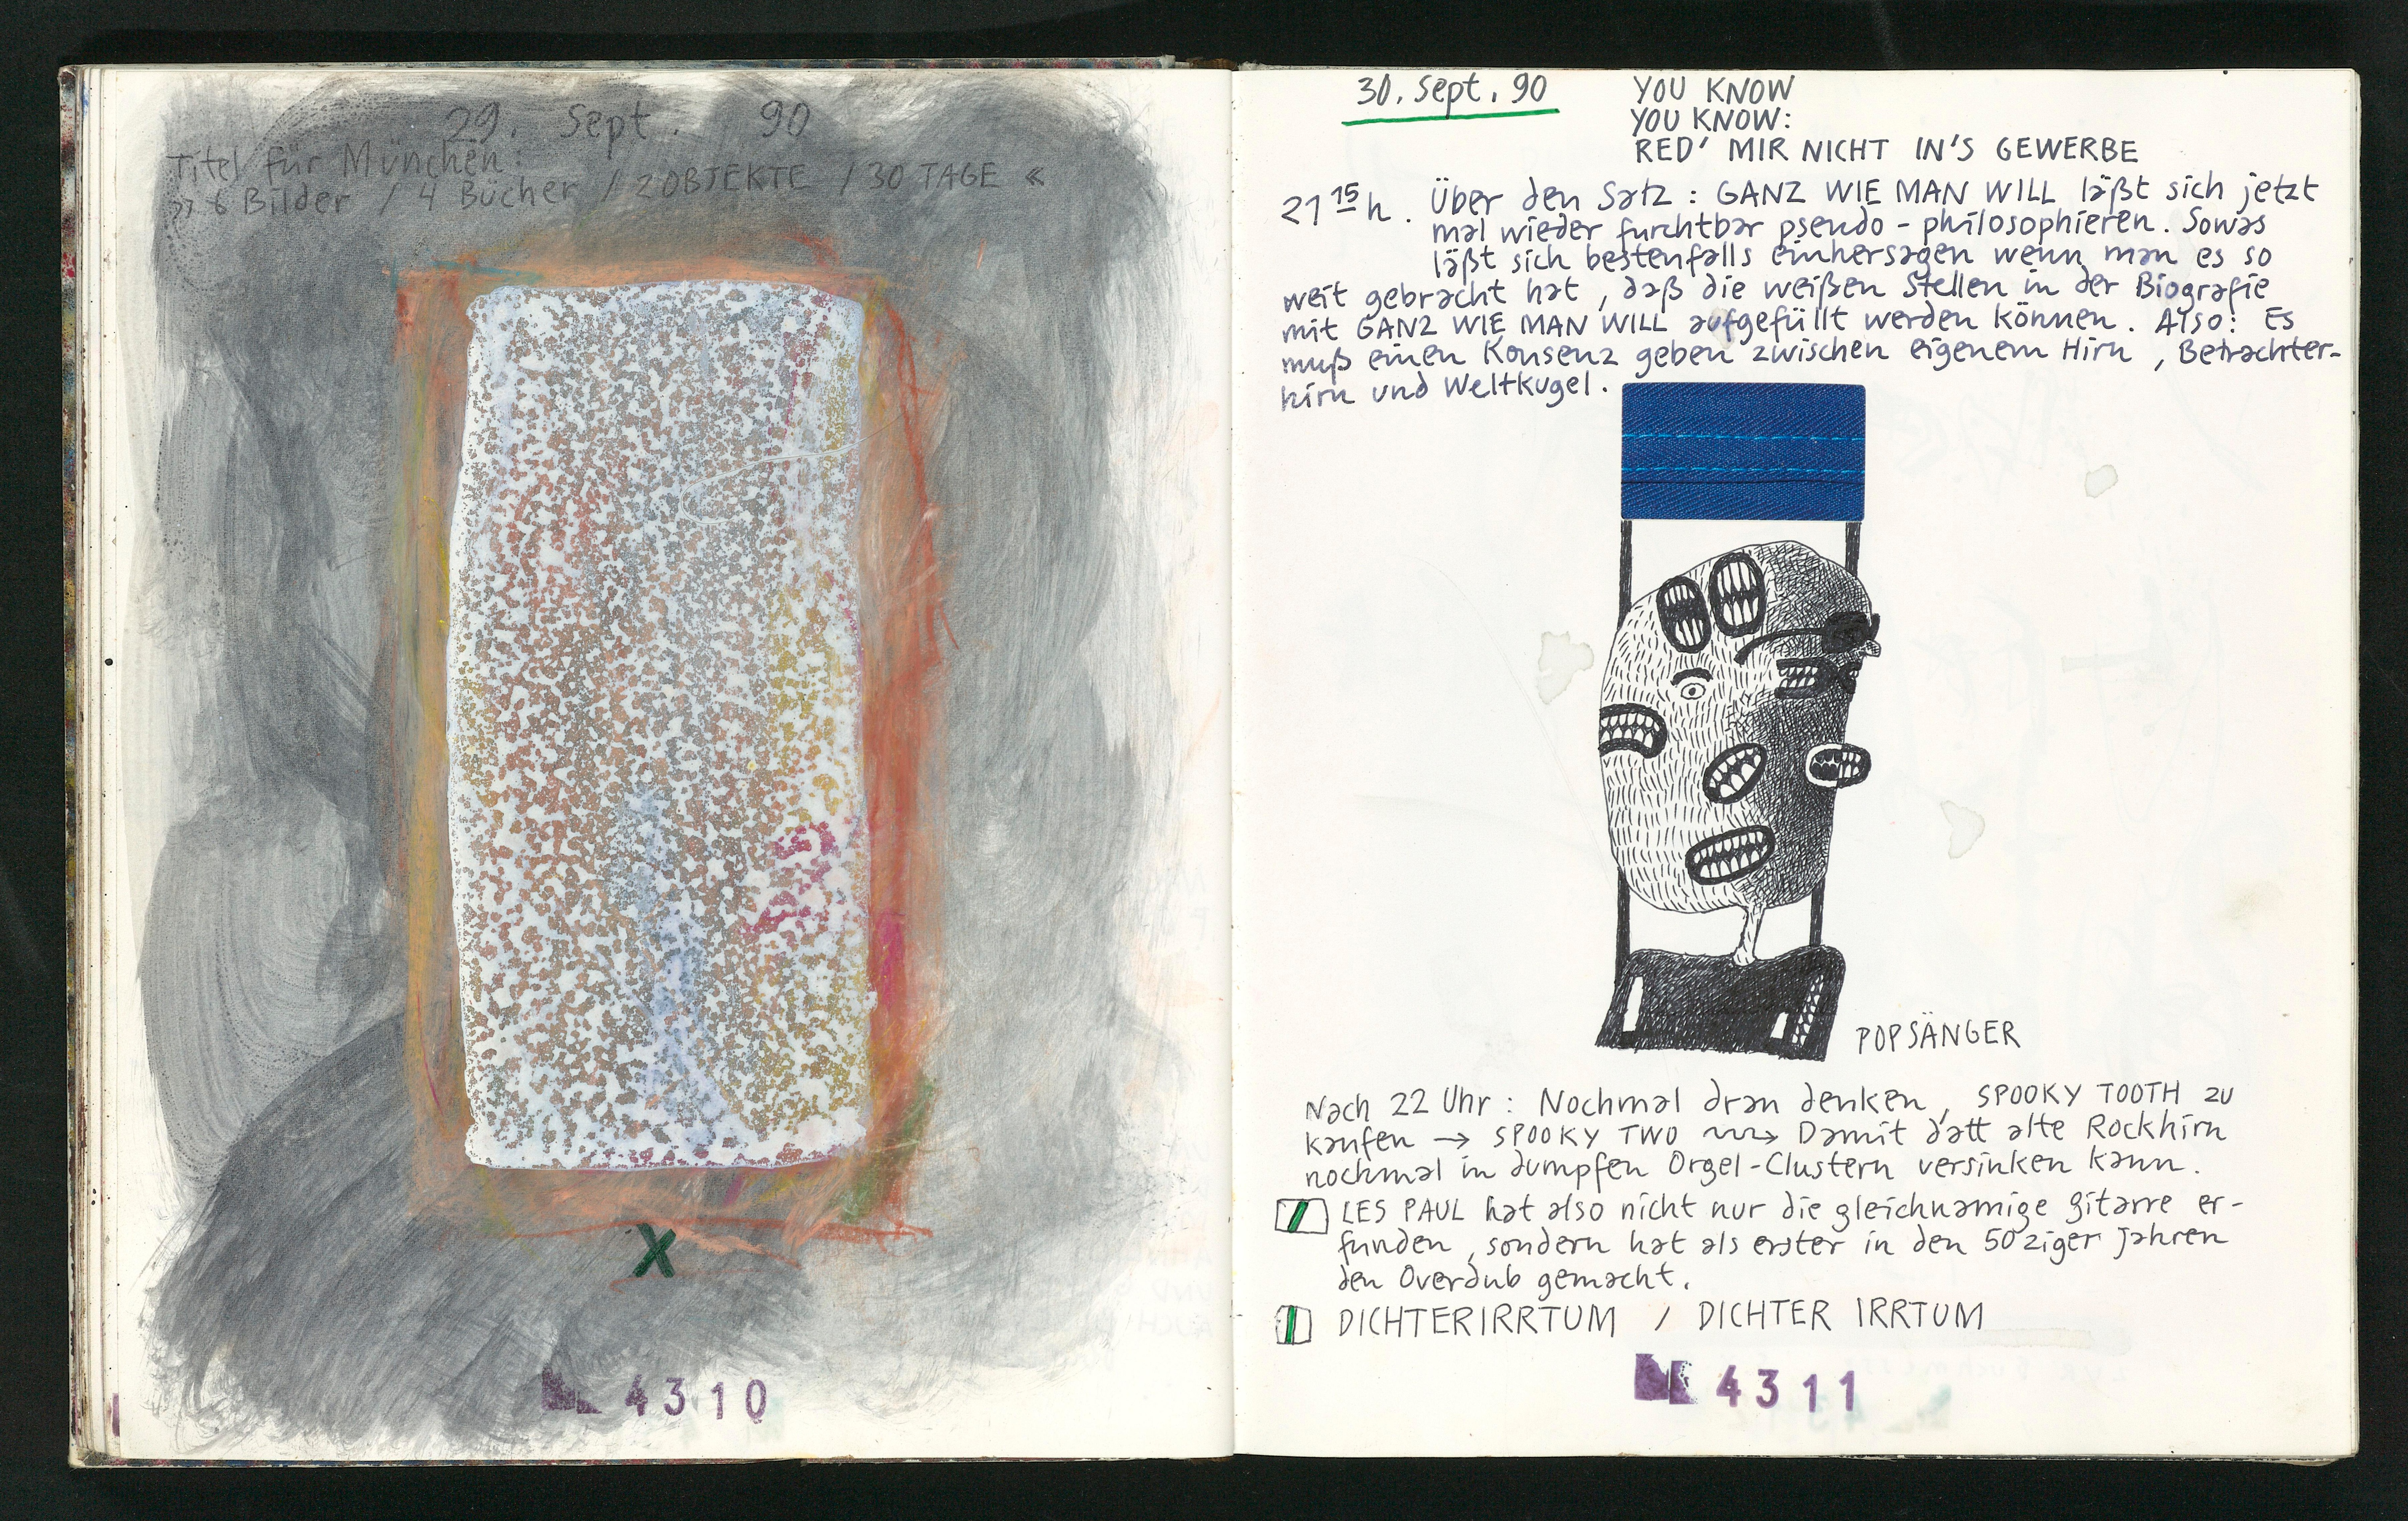 29. Sept. 90
Titel für München:
» 6 Bilder / 4 Bücher / 2 OBJEKTE / 30 TAGE «
X
4310
30. Sept. 90
YOU KNOW
YOU KNOW:
RED' MIR NICHT IN'S GEWERBE
21 15 h. Über den Satz: GANZ WIE MAN WILL läßt sich jetzt
mal wieder furchtbar pseudo-philosophieren. Sowas
läßt sich bestenfalls einhersagen wenn man es so
weit gebracht hat, daß die weißen Stellen in der Biografie
mit GANZ WIE MAN WILL aufgefüllt werden können. Also: Es
muß einen Konsenz geben zwischen eigenem Hirn, Betrachter-
hirn und Weltkugel.
POPSÄNGER
Nach 22 Uhr: Nochmal dran denken, SPOOKY TOOTH zu
kaufen → SPOOKY TWO → Damit datt alte Rockhirn
nochmal in dumpfen Orgel-Clustern versinken kann.
LES PAUL hat also nicht nur die gleichnamige Gitarre er-
funden, sondern hat als erster in den 50ziger Jahren
den Overdub gemacht.
DICHTERIRRTUM / DICHTER IRRTUM
4311